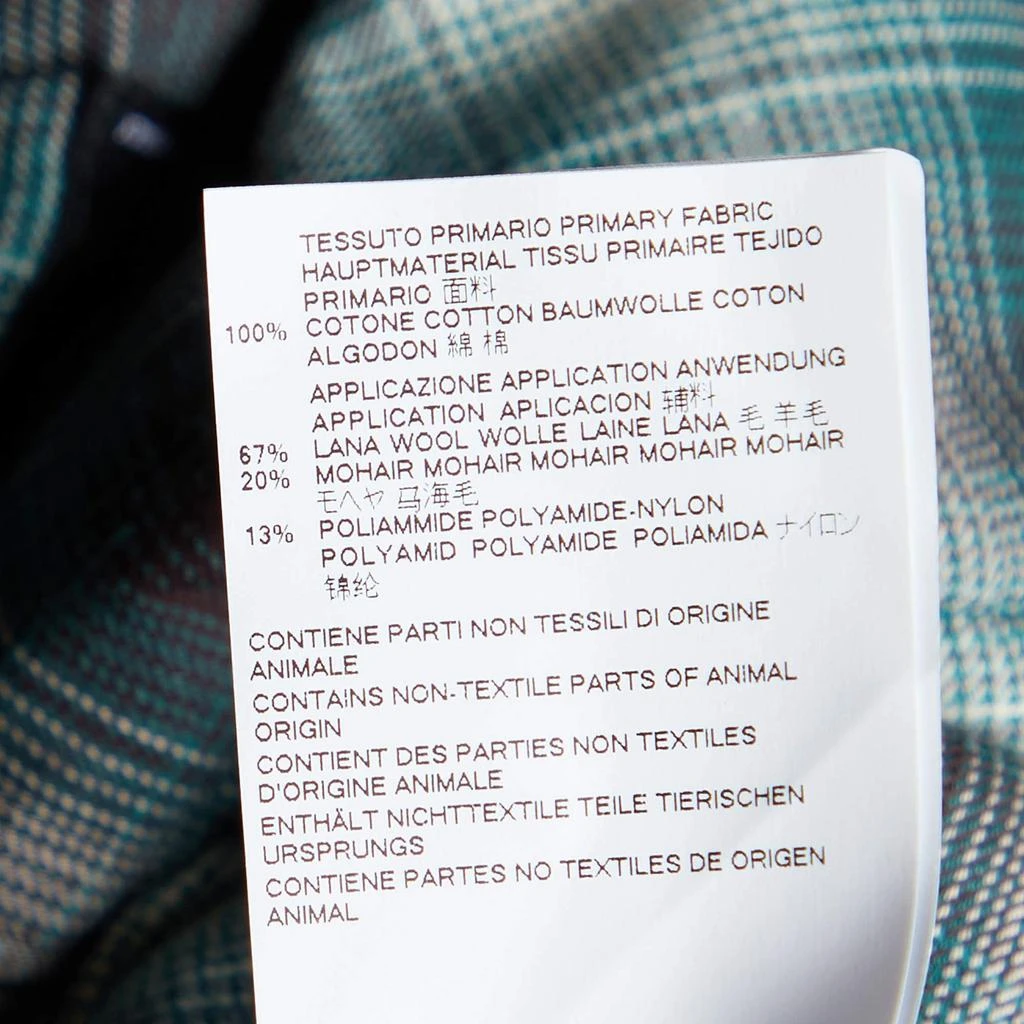 TESSUTO PRIMARIO PRIMARY FABRIC
HAUPTMATERIAL TISSU PRIMAIRE TEJIDO
PRIMARIO 面料
100% COTONE COTTON BAUMWOLLE COTON
ALGODON 綿 棉
APPLICAZIONE APPLICATION ANWENDUNG
APPLICATION APLICACION 辅料
67% LANA WOOL WOLLE LAINE LANA 毛 羊毛
20% MOHAIR MOHAIR MOHAIR MOHAIR MOHAIR
モヘヤ 马海毛
13% POLIAMMIDE POLYAMIDE-NYLON
POLYAMID POLYAMIDE POLIAMIDA ナイロン
锦纶
CONTIENE PARTI NON TESSILI DI ORIGINE
ANIMALE
CONTAINS NON-TEXTILE PARTS OF ANIMAL
ORIGIN
CONTIENT DES PARTIES NON TEXTILES
D'ORIGINE ANIMALE
ENTHÄLT NICHTTEXTILE TEILE TIERISCHEN
URSPRUNGS
CONTIENE PARTES NO TEXTILES DE ORIGEN
ANIMAL